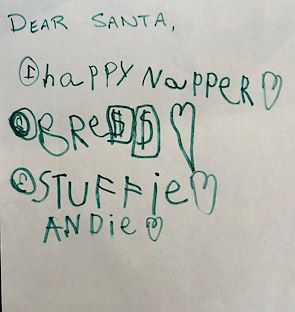 DEAR SANTA,
① happy NappeR ♡
② BRe$$ ♡
③ STUFFie ♡
ANDie ♡